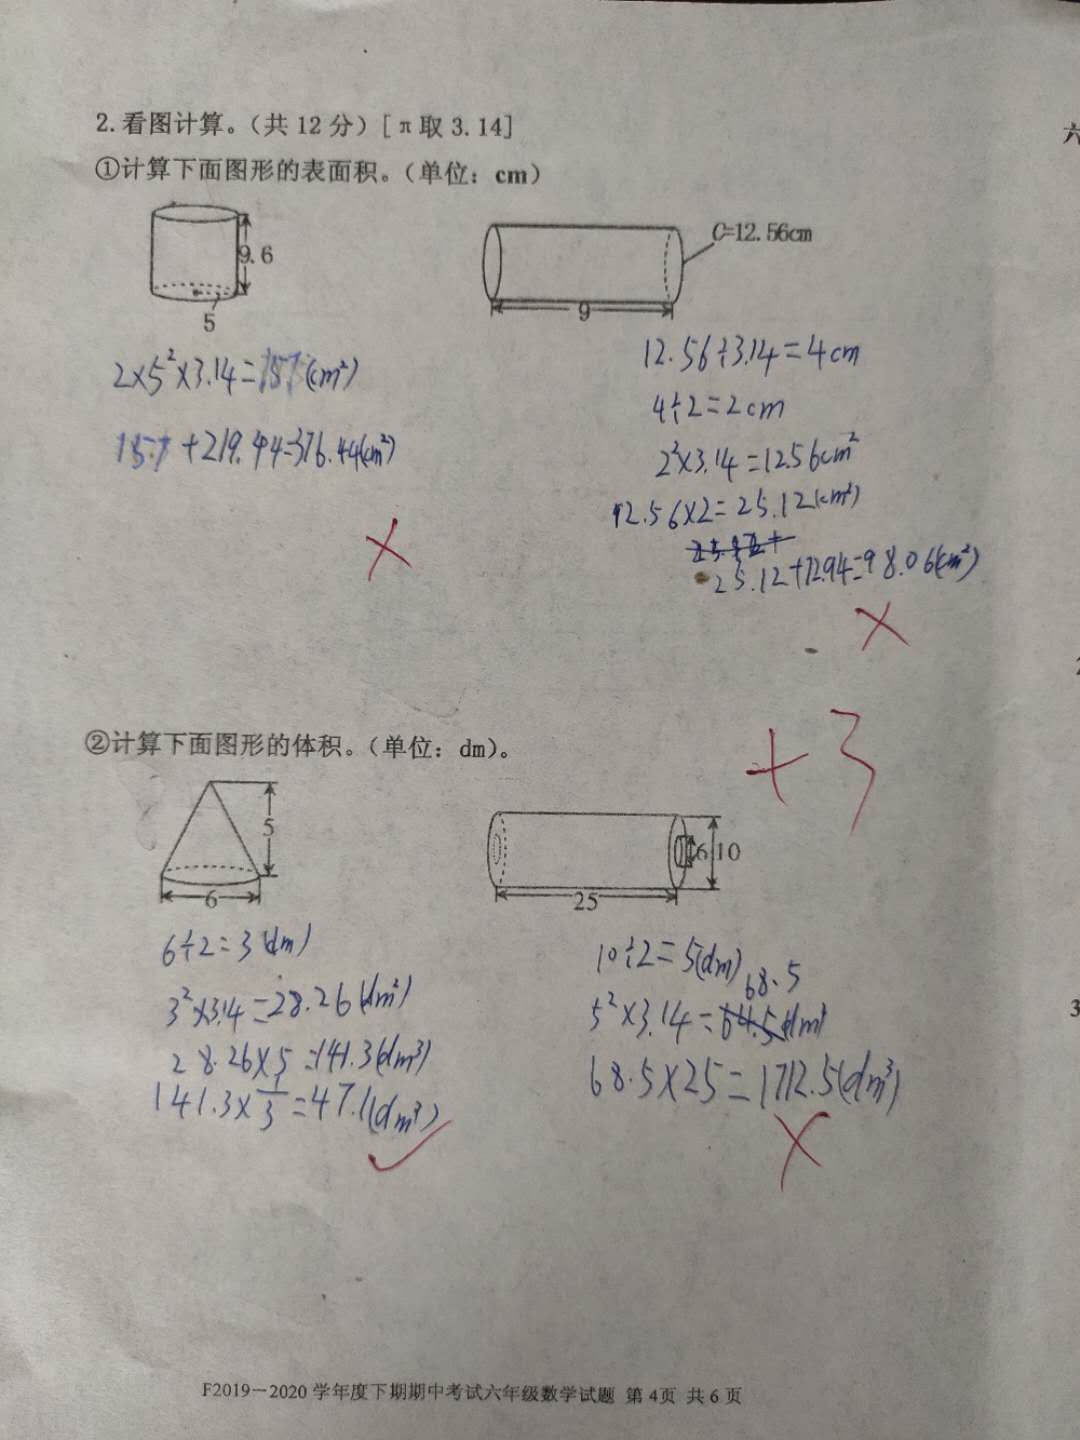 2.看图计算。（共12分）[π取3.14]
①计算下面图形的表面积。（单位：cm）
9.6
5
C=12.56cm
9
2×5²×3.14=157(cm²)
157+219.44=376.44(cm²)
12.56÷3.14=4cm
4÷2=2cm
2²×3.14=12.56cm²
12.56×2=25.12(cm²)
25.12+72.94=98.06(cm²)
+3
②计算下面图形的体积。（单位：dm）。
5
6
6 10
25
6÷2=3(dm)
3²×3.14=28.26(dm²)
28.26×5=141.3(dm³)
141.3×1/3=47.1(dm³)
10÷2=5(dm)
68.5
5²×3.14=64.5(dm)
68.5×25=1712.5(dm³)
F2019－2020学年度下期期中考试六年级数学试题 第4页 共6页
六
3